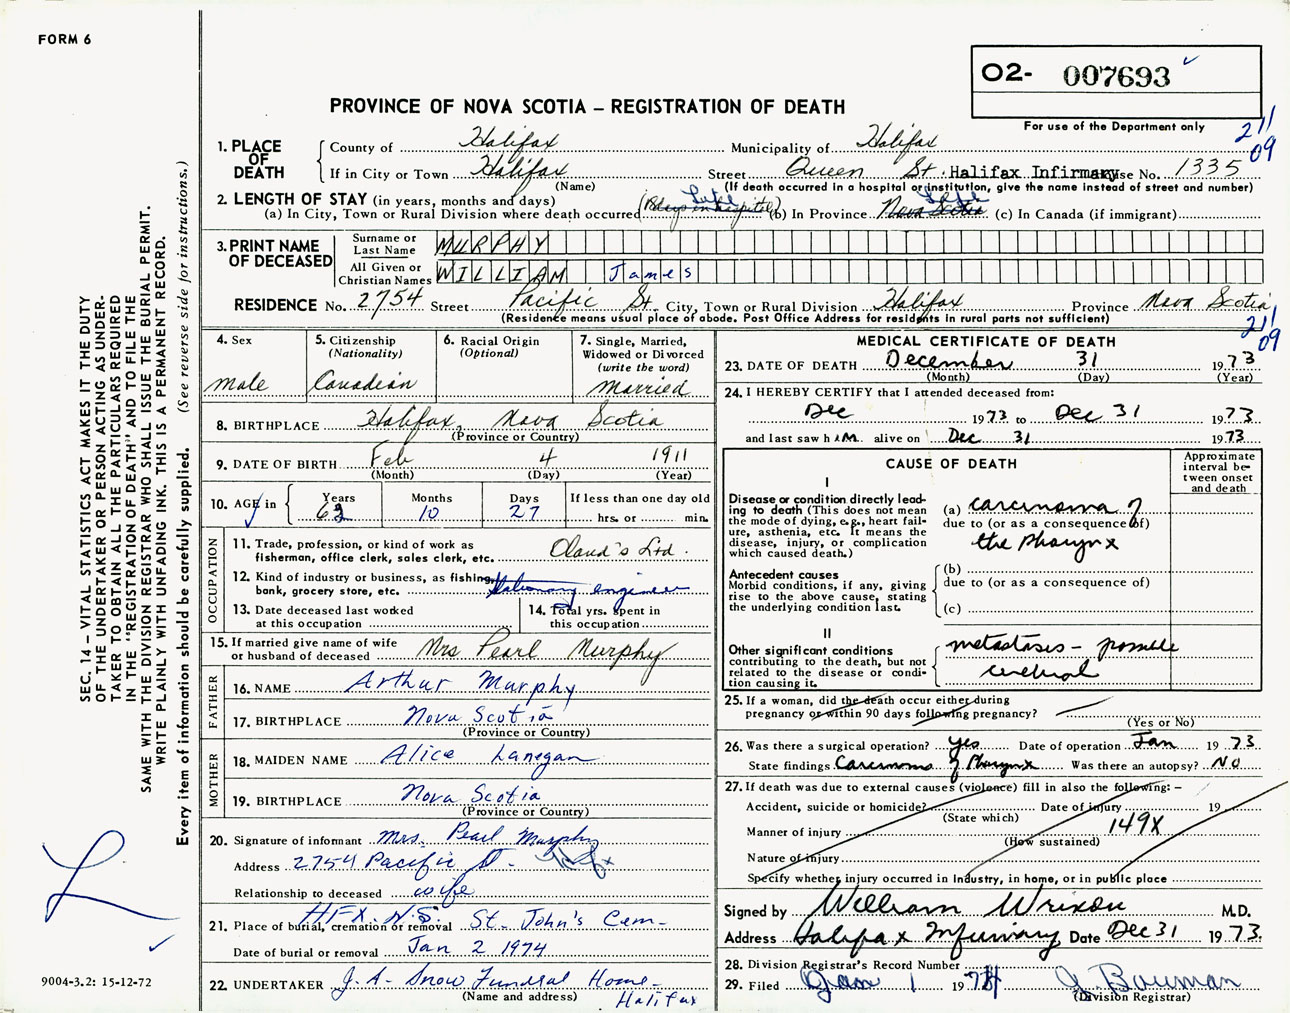 FORM 6
O2- 007693
PROVINCE OF NOVA SCOTIA – REGISTRATION OF DEATH
For use of the Department only
211
09
1. PLACE OF DEATH
County of Halifax Municipality of Halifax
If in City or Town Halifax Street Queen St. Halifax Infirmary House No. 1335
(Name) (If death occurred in a hospital or institution, give the name instead of street and number)
2. LENGTH OF STAY (in years, months and days)
(a) In City, Town or Rural Division where death occurred Life (b) In Province Life Nova Scotia (c) In Canada (if immigrant)
3. PRINT NAME OF DECEASED
Surname or Last Name MURPHY
All Given or Christian Names WILLIAM James
RESIDENCE No. 2754 Street Pacific St. City, Town or Rural Division Halifax Province Nova Scotia
(Residence means usual place of abode. Post Office Address for residents in rural parts not sufficient)
211
09
4. Sex
male
5. Citizenship (Nationality)
Canadian
6. Racial Origin (Optional)
7. Single, Married, Widowed or Divorced (write the word)
Married
8. BIRTHPLACE Halifax, Nova Scotia
(Province or Country)
9. DATE OF BIRTH Feb 4 1911
(Month) (Day) (Year)
10. AGE in
Years Months Days If less than one day old
62 10 27 hrs. or min.
OCCUPATION
11. Trade, profession, or kind of work as fisherman, office clerk, sales clerk, etc. Oland's Ltd.
12. Kind of industry or business, as fishing, bank, grocery store, etc. Stationary engineer
13. Date deceased last worked at this occupation
14. Total yrs. spent in this occupation
15. If married give name of wife or husband of deceased Mrs Pearl Murphy
FATHER
16. NAME Arthur Murphy
17. BIRTHPLACE Nova Scotia
(Province or Country)
MOTHER
18. MAIDEN NAME Alice Lanegan
19. BIRTHPLACE Nova Scotia
(Province or Country)
20. Signature of informant Mrs. Pearl Murphy
Address 2754 Pacific St. Hfx
Relationship to deceased wife
HFX. N.S.
21. Place of burial, cremation or removal St. John's Cem-
Date of burial or removal Jan 2 1974
22. UNDERTAKER J.A. Snow Funeral Home-
(Name and address) Halifax
MEDICAL CERTIFICATE OF DEATH
23. DATE OF DEATH December 31 1973
(Month) (Day) (Year)
24. I HEREBY CERTIFY that I attended deceased from:
Dec 1973 to Dec 31 1973
and last saw him alive on Dec 31 1973
CAUSE OF DEATH
Approximate interval between onset and death
I
Disease or condition directly leading to death (This does not mean the mode of dying, e.g., heart failure, asthenia, etc. It means the disease, injury, or complication which caused death.)
(a) carcinoma of
due to (or as a consequence of)
the Pharynx
Antecedent causes
Morbid conditions, if any, giving rise to the above cause, stating the underlying condition last.
(b)
due to (or as a consequence of)
(c)
II
Other significant conditions
contributing to the death, but not related to the disease or condition causing it.
metastases – possible
cerebral
25. If a woman, did the death occur either during pregnancy or within 90 days following pregnancy?
(Yes or No)
26. Was there a surgical operation? yes Date of operation Jan 1973
State findings Carcinoma of Pharynx Was there an autopsy? NO
27. If death was due to external causes (violence) fill in also the following: –
Accident, suicide or homicide? Date of injury 19
(State which)
Manner of injury 149X
(How sustained)
Nature of injury
Specify whether injury occurred in Industry, in home, or in public place
Signed by William Wrixon M.D.
Address Halifax Infirmary Date Dec 31 1973.
28. Division Registrar's Record Number
29. Filed Jan 1 1974 J. Bauman
(Division Registrar)
SEC. 14 – VITAL STATISTICS ACT MAKES IT THE DUTY
OF THE UNDERTAKER OR PERSON ACTING AS UNDER-
TAKER TO OBTAIN ALL THE PARTICULARS REQUIRED
IN THE "REGISTRATION OF DEATH" AND TO FILE THE
SAME WITH THE DIVISION REGISTRAR WHO SHALL ISSUE THE BURIAL PERMIT.
WRITE PLAINLY WITH UNFADING INK. THIS IS A PERMANENT RECORD.
Every item of information should be carefully supplied. (See reverse side for instructions.)
9004-3.2: 15-12-72